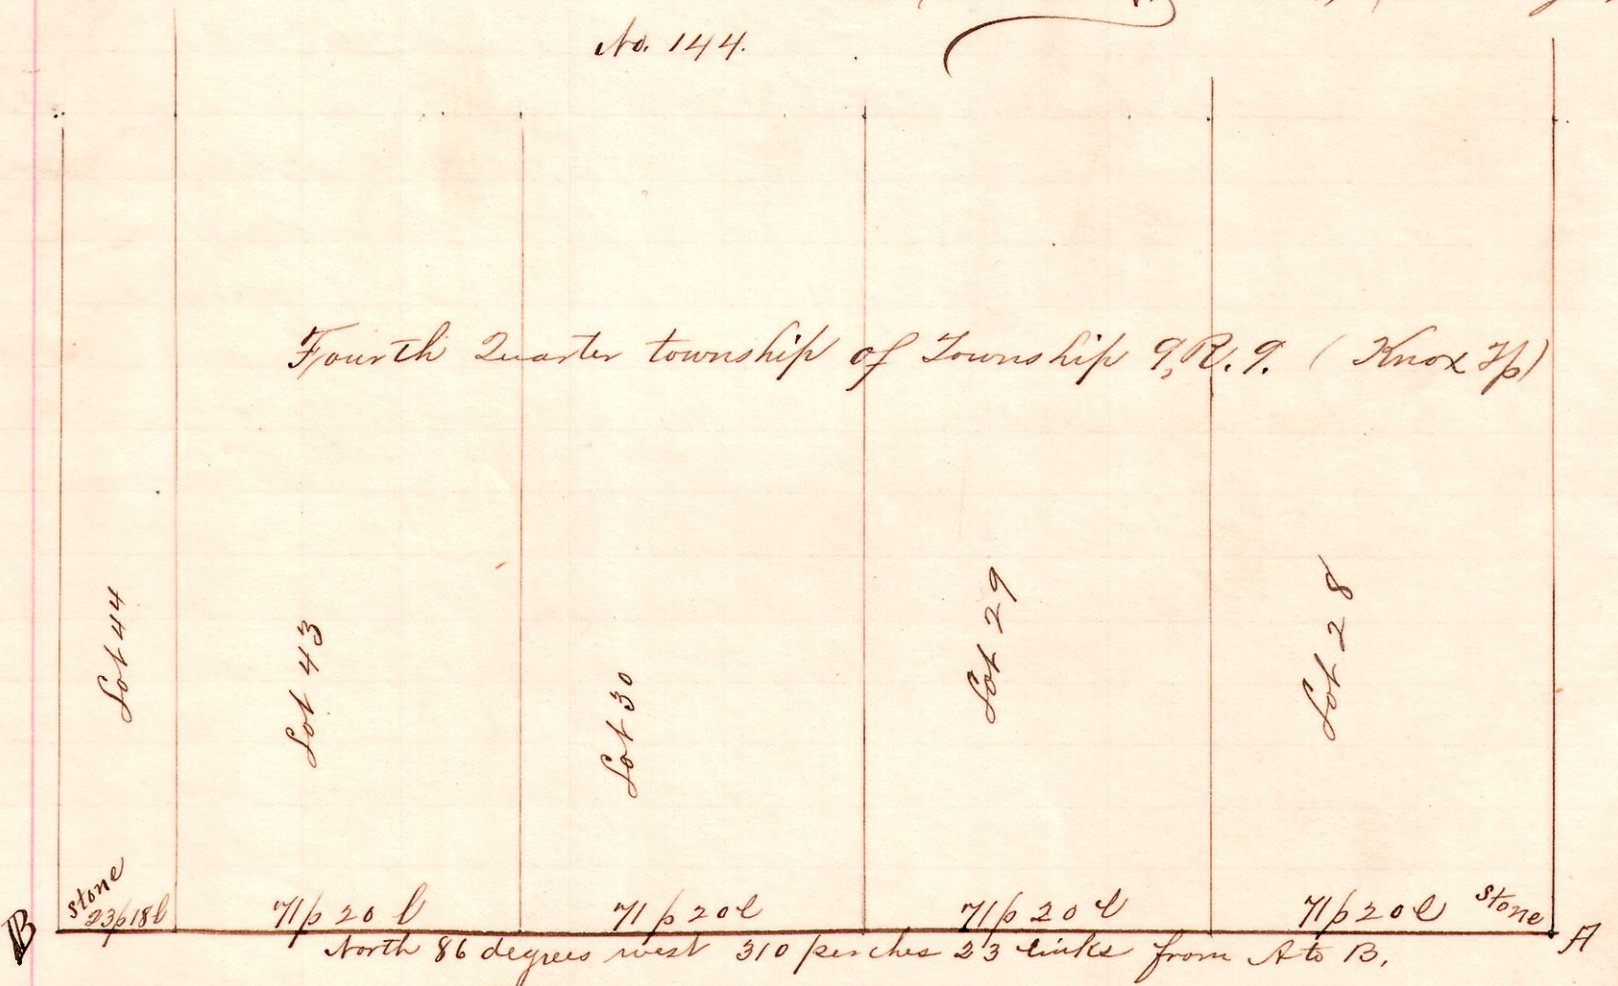 No. 144.
Fourth Quarter township of Township 9, R. 9. ( Knox Tp)
Lot 44
Lot 43
Lot 30
Lot 29
Lot 28
stone
23p18l
71p 20 l
71p 20l
71p 20 l
71p 20l
stone
B
A
North 86 degrees west 310 perches 23 links from A to B.